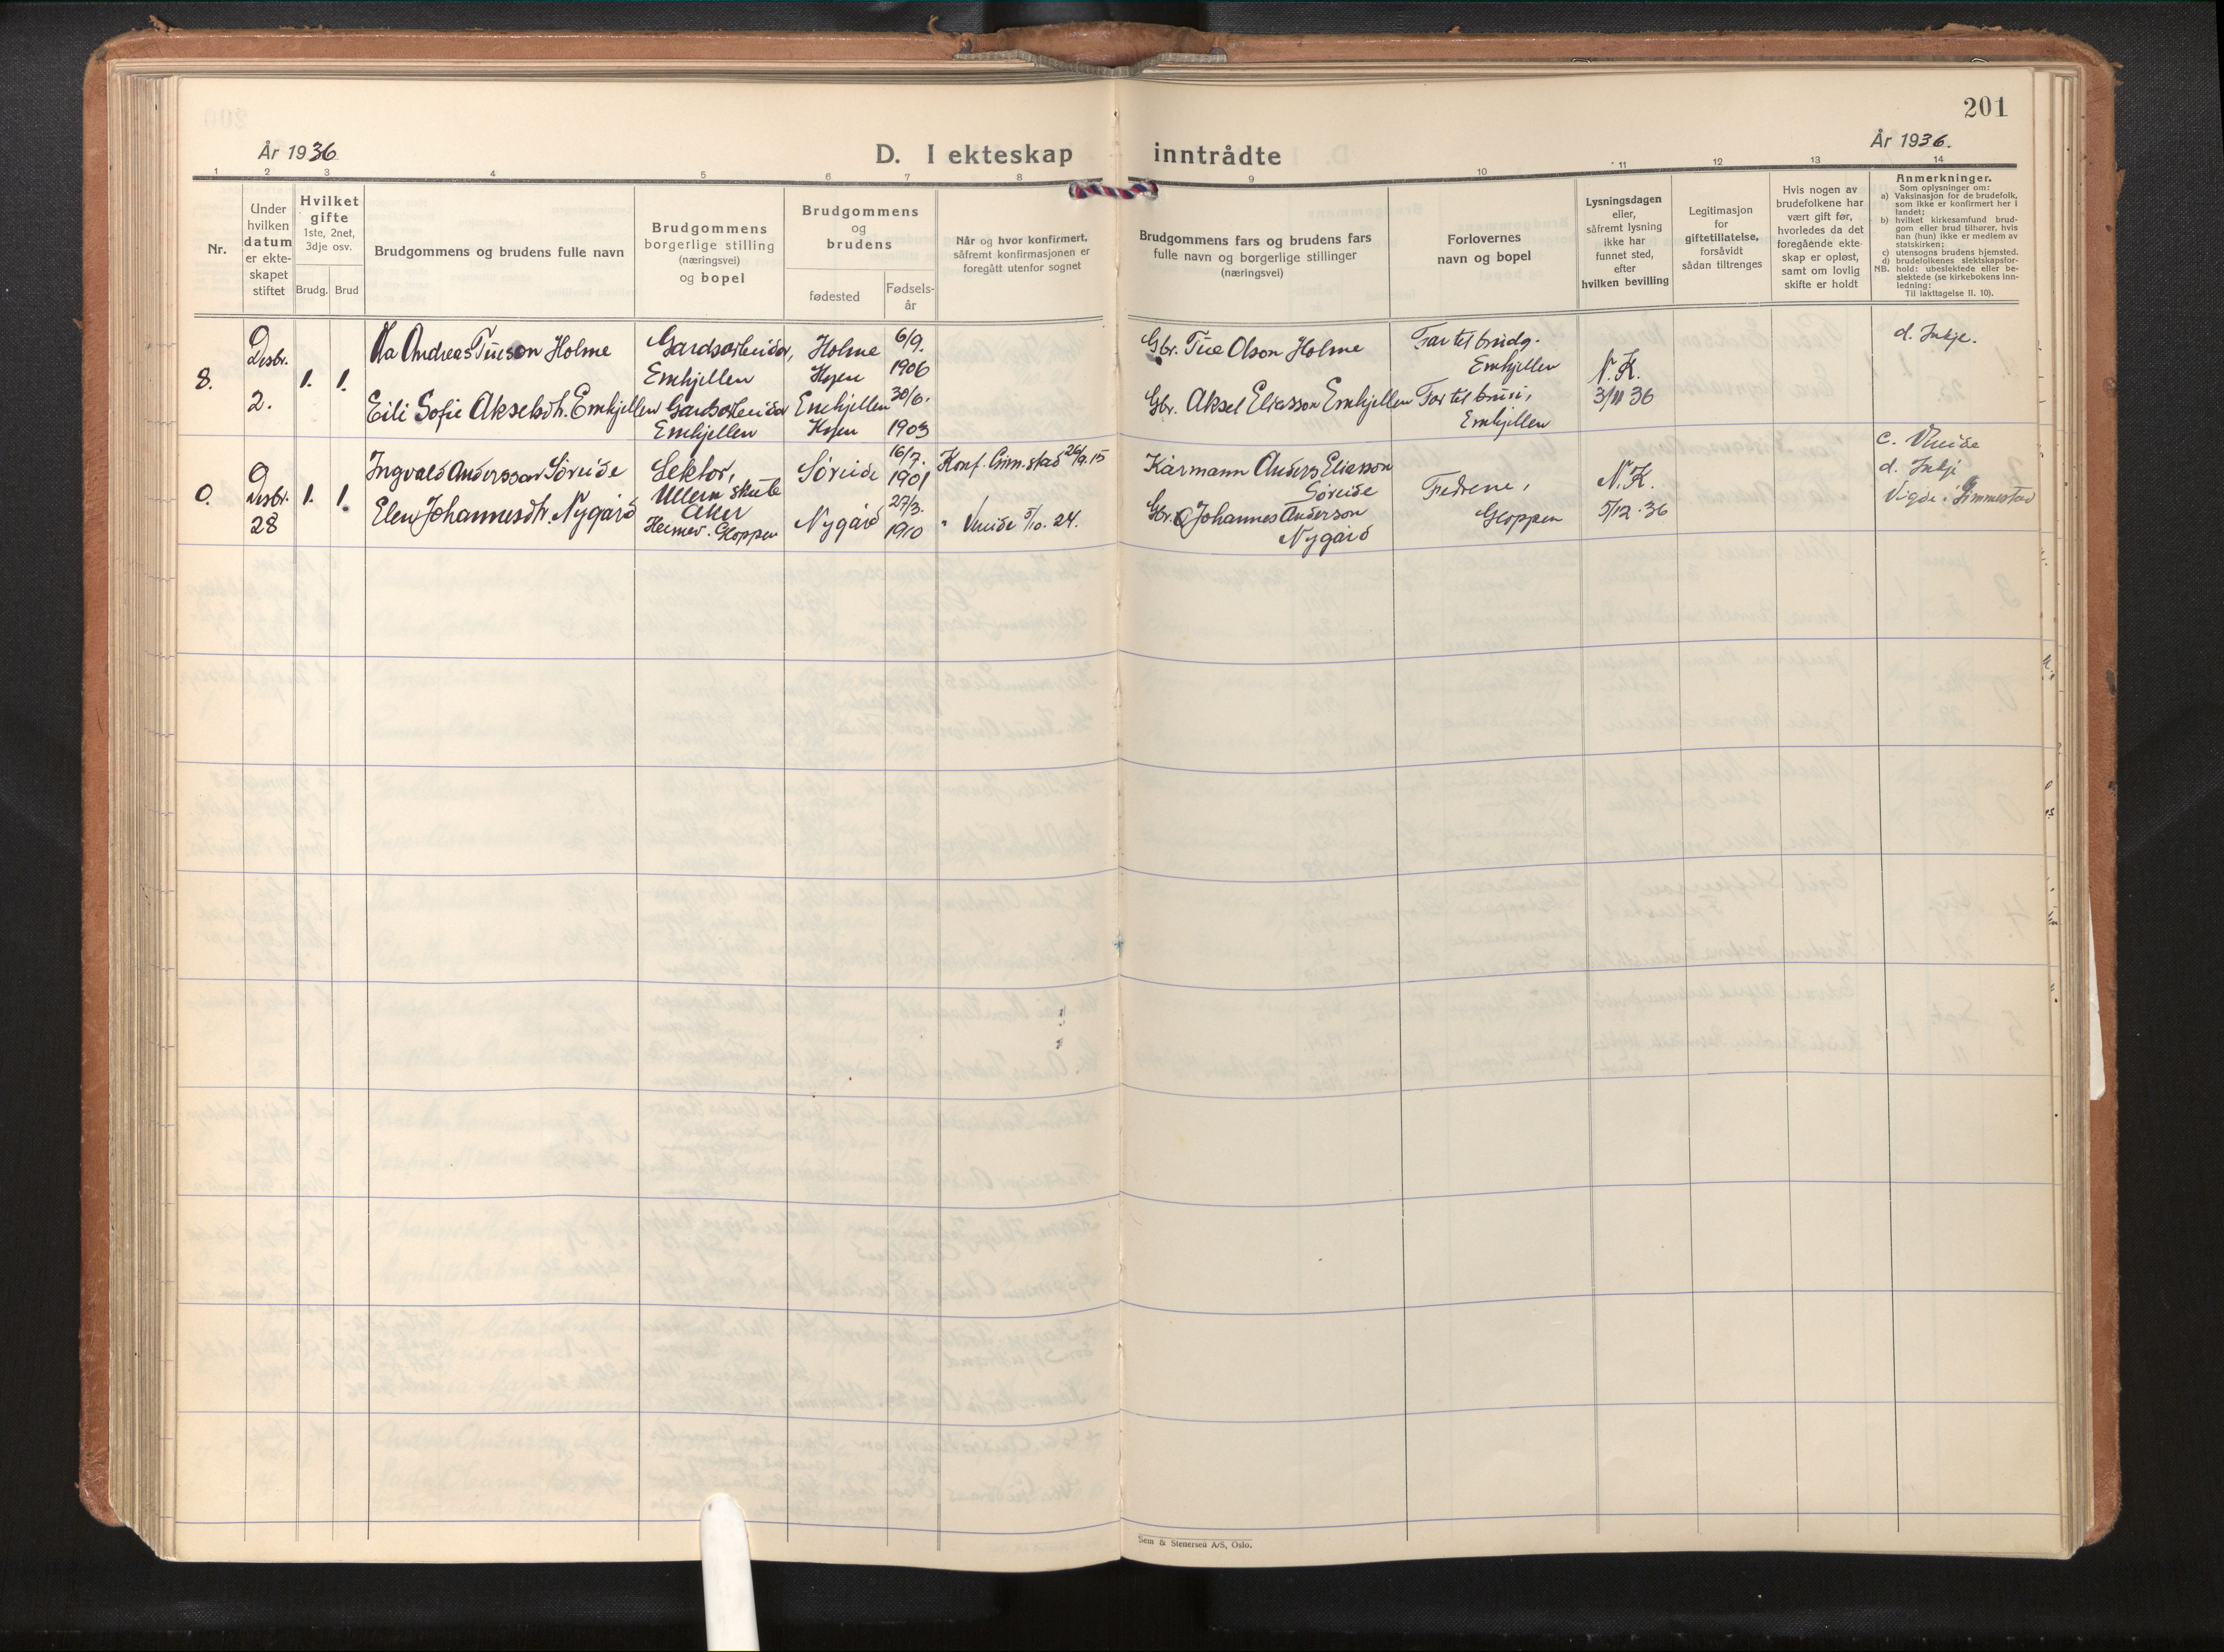 201
År 1936
År 1936.
D. I ekteskap inntrådte
1 2 3 4 5 6 7 8 9 10 11 12 13 14
Nr.
Under
hvilken
datum
er ekte-
skapet
stiftet
Hvilket
gifte
1ste, 2net,
3dje osv.
Brudg. Brud
Brudgommens og brudens fulle navn
Brudgommens
borgerlige stilling
(næringsvei)
og bopel
Brudgommens
og
brudens
fødested
Fødsels-
år
Når og hvor konfirmert,
såfremt konfirmasjonen er
foregått utenfor sognet
Brudgommens fars og brudens fars
fulle navn og borgerlige stillinger
(næringsvei)
Forlovernes
navn og bopel
Lysningsdagen
eller,
såfremt lysning
ikke har
funnet sted,
efter
hvilken bevilling
Legitimasjon
for
giftetillatelse,
forsåvidt
sådan tiltrenges
Hvis nogen av
brudefolkene har
vært gift før,
hvorledes da det
foregående ekte-
skap er opløst,
samt om lovlig
skifte er holdt
Anmerkninger.
Som oplysninger om:
a) Vaksinasjon for de brudefolk,
som ikke er konfirmert her i
landet;
b) hvilket kirkesamfund brud-
gom eller brud tilhører, hvis
han (hun) ikke er medlem av
statskirken;
c) utensogns brudens hjemsted.
d) brudefolkenes slektskapsfor-
NB. hold: ubeslektede eller be-
slektede (se kirkebokens inn-
ledning:
Til iakttagelse II. 10).
8.
Desbr.
2.
1. 1.
Ola Andreas Tueson Holme
Eili Sofie Akselsdtr. Emhjellen
Gardsarbeidar,
Emhjellen
Gardsarbeidar
Emhjellen
Holme
Hyen
Emhjellen
Hyen
6/9.
1906
30/6.
1903
Gbr. Tue Olson Holme
Gbr. Aksel Eliasson Emhjellen
Far til brudg.
Emhjellen
Far til bruri,
Emhjellen
N. K.
3/11 36
d. Inkje.
9.
Desbr.
28
1. 1.
Ingvald Andersson Søreide
Elen Johannesdtr. Nygård
Lektor,
Ullern skule
Aker
Heimev. Gloppen
Søreide
Nygård
16/7.
1901
27/3.
1910
Konf. Gimmestad 26/9. 15
" Vereide 5/10. 24.
Kårmann Anders Eliasson
Søreide
Gbr. Johannes Anderson
Nygård
Fedrene,
Gloppen
N. K.
5/12. 36
c. Vereide
d. Inkje
Vigde i Gimmestad
Sem & Stenersen A/S, Oslo.